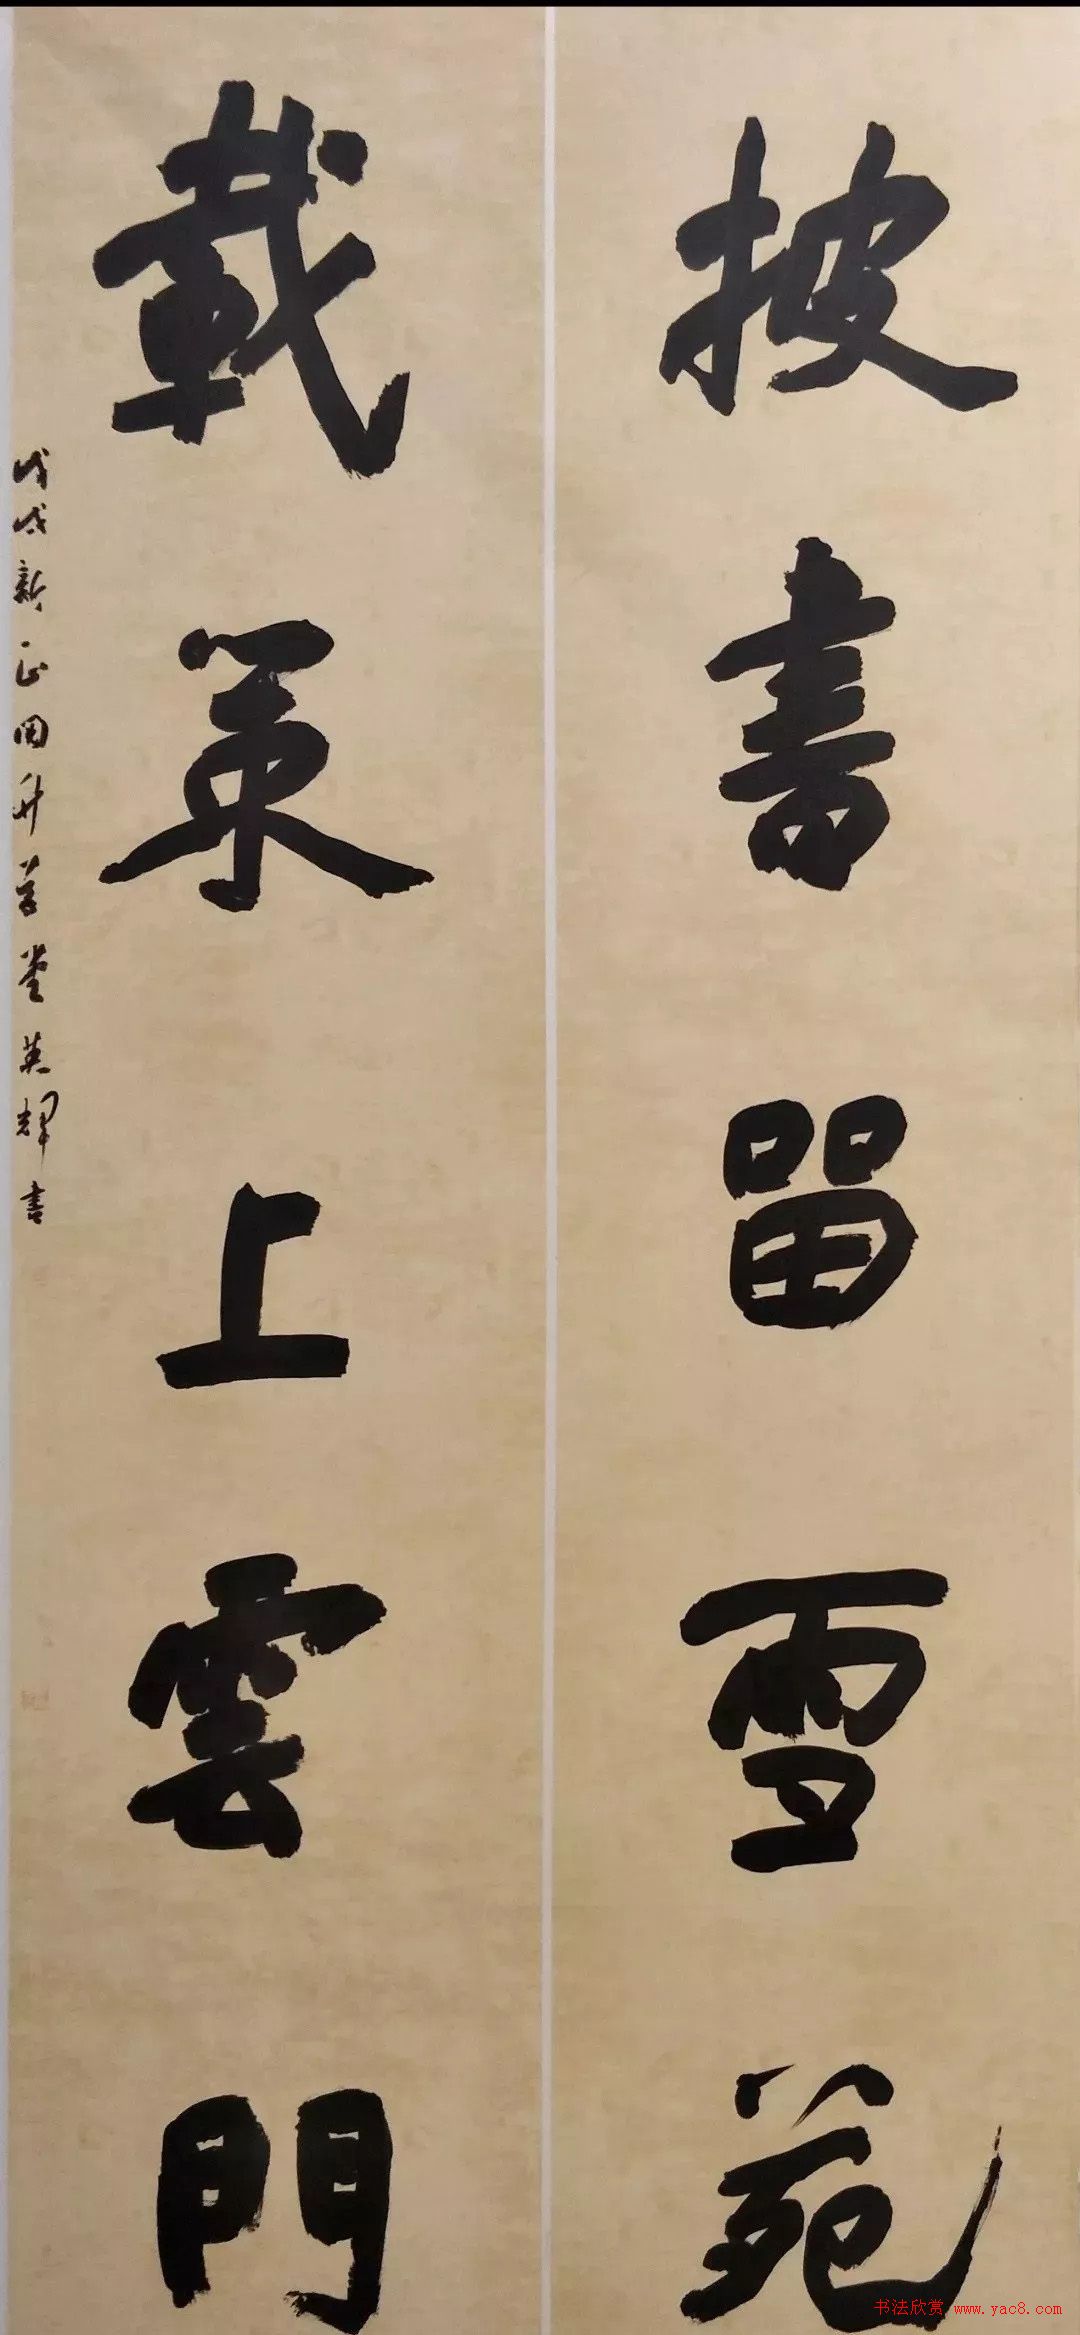 披書留雪苑
載策上雲門
戊戌新正田升草堂英輝書
书法欣赏 www.yac8.com